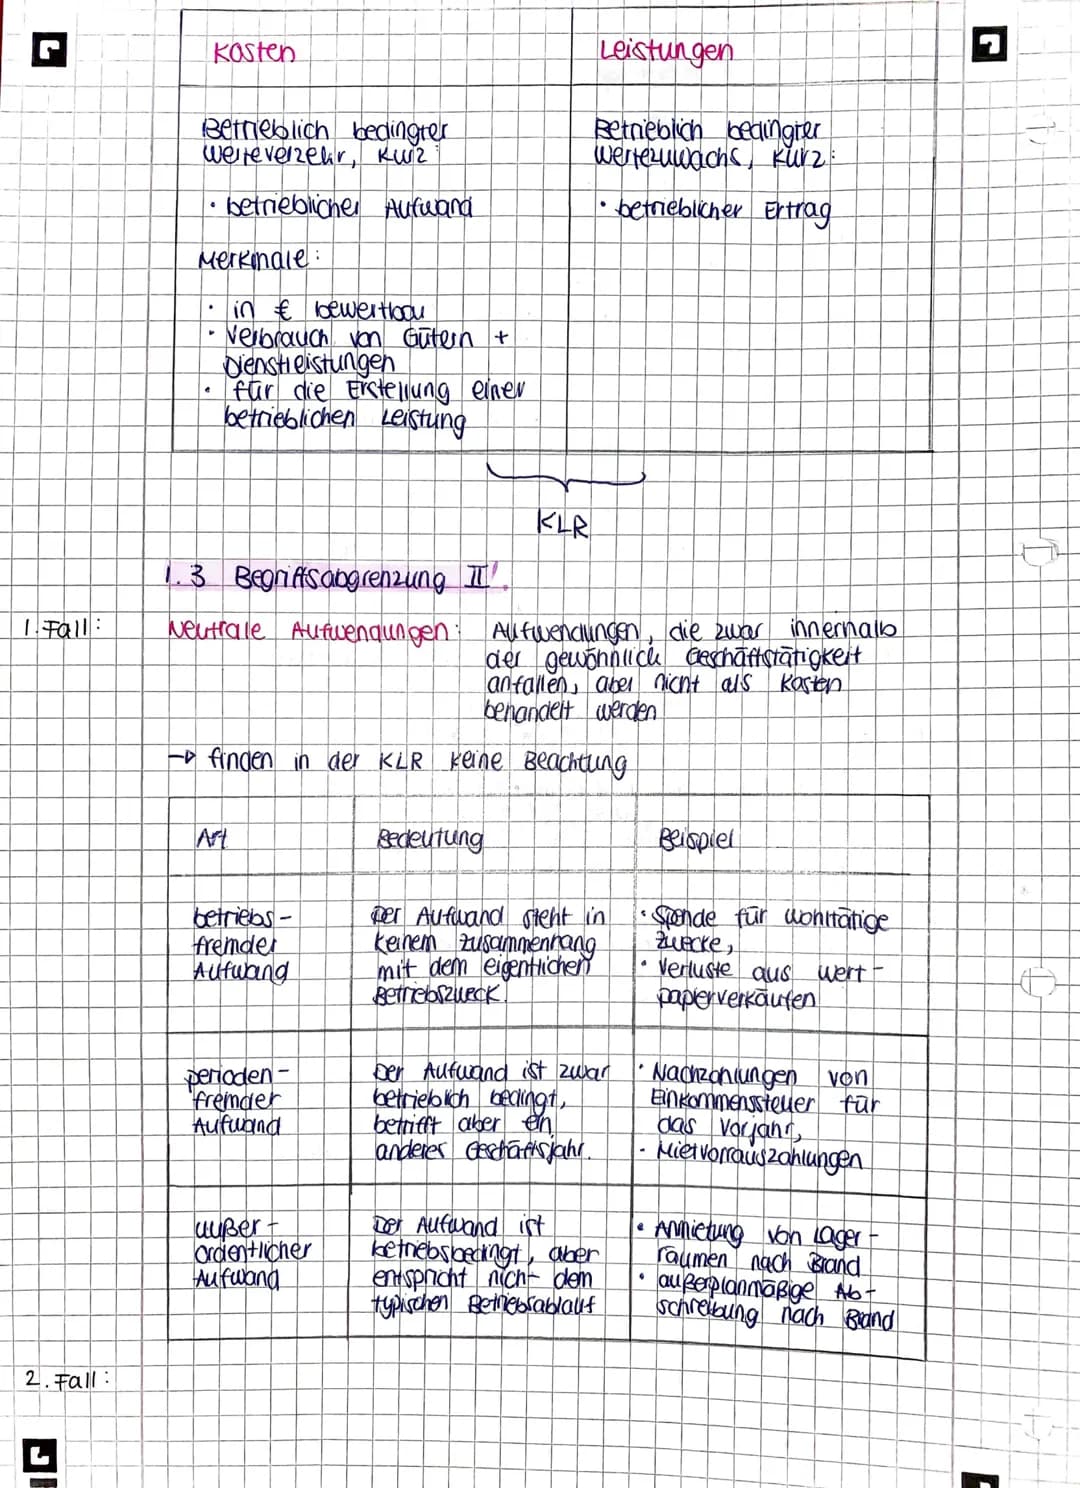 Kosten
Leistungen
Betrieblich bedingter
Werteverzehr, kurz:
• betrieblicher Aufwand
Merkmale:
• in € bewertbar
• Verbrauch von Gütern +
Dienstleistungen
• für die Erstellung einer
betrieblichen Leistung
Betrieblich bedingter
Wertezuwachs, kurz:
• betrieblicher Ertrag
KLR
1.3 Begriffsabgrenzung II
1. Fall:
Neutrale Aufwendungen:
Aufwendungen, die zwar innerhalb
der gewöhnlich Geschäftstätigkeit
anfallen, aber nicht als Kosten
behandelt werden
→ finden in der KLR keine Beachtung
Art
Bedeutung
Beispiel
betriebs-
fremder
Aufwand
Der Aufwand steht in
keinem Zusammenhang
mit dem eigentlichen
Betriebszweck.
• Spende für wohltätige
Zwecke,
• Verluste aus Wert-
papierverkäufen
perioden-
fremder
Aufwand
Der Aufwand ist zwar
betrieblich bedingt,
betrifft aber ein
anderes Geschäftsjahr.
• Nachzahlungen von
Einkommenssteuer für
das Vorjahr,
• Mietvorrauszahlungen
außer-
ordentlicher
Aufwand
Der Aufwand ist
betriebsbedingt, aber
entspricht nicht dem
typischen Betriebsablauf
• Anmietung von Lager-
räumen nach Brand
• außerplanmäßige Ab-
schreibung nach Brand
2. Fall: